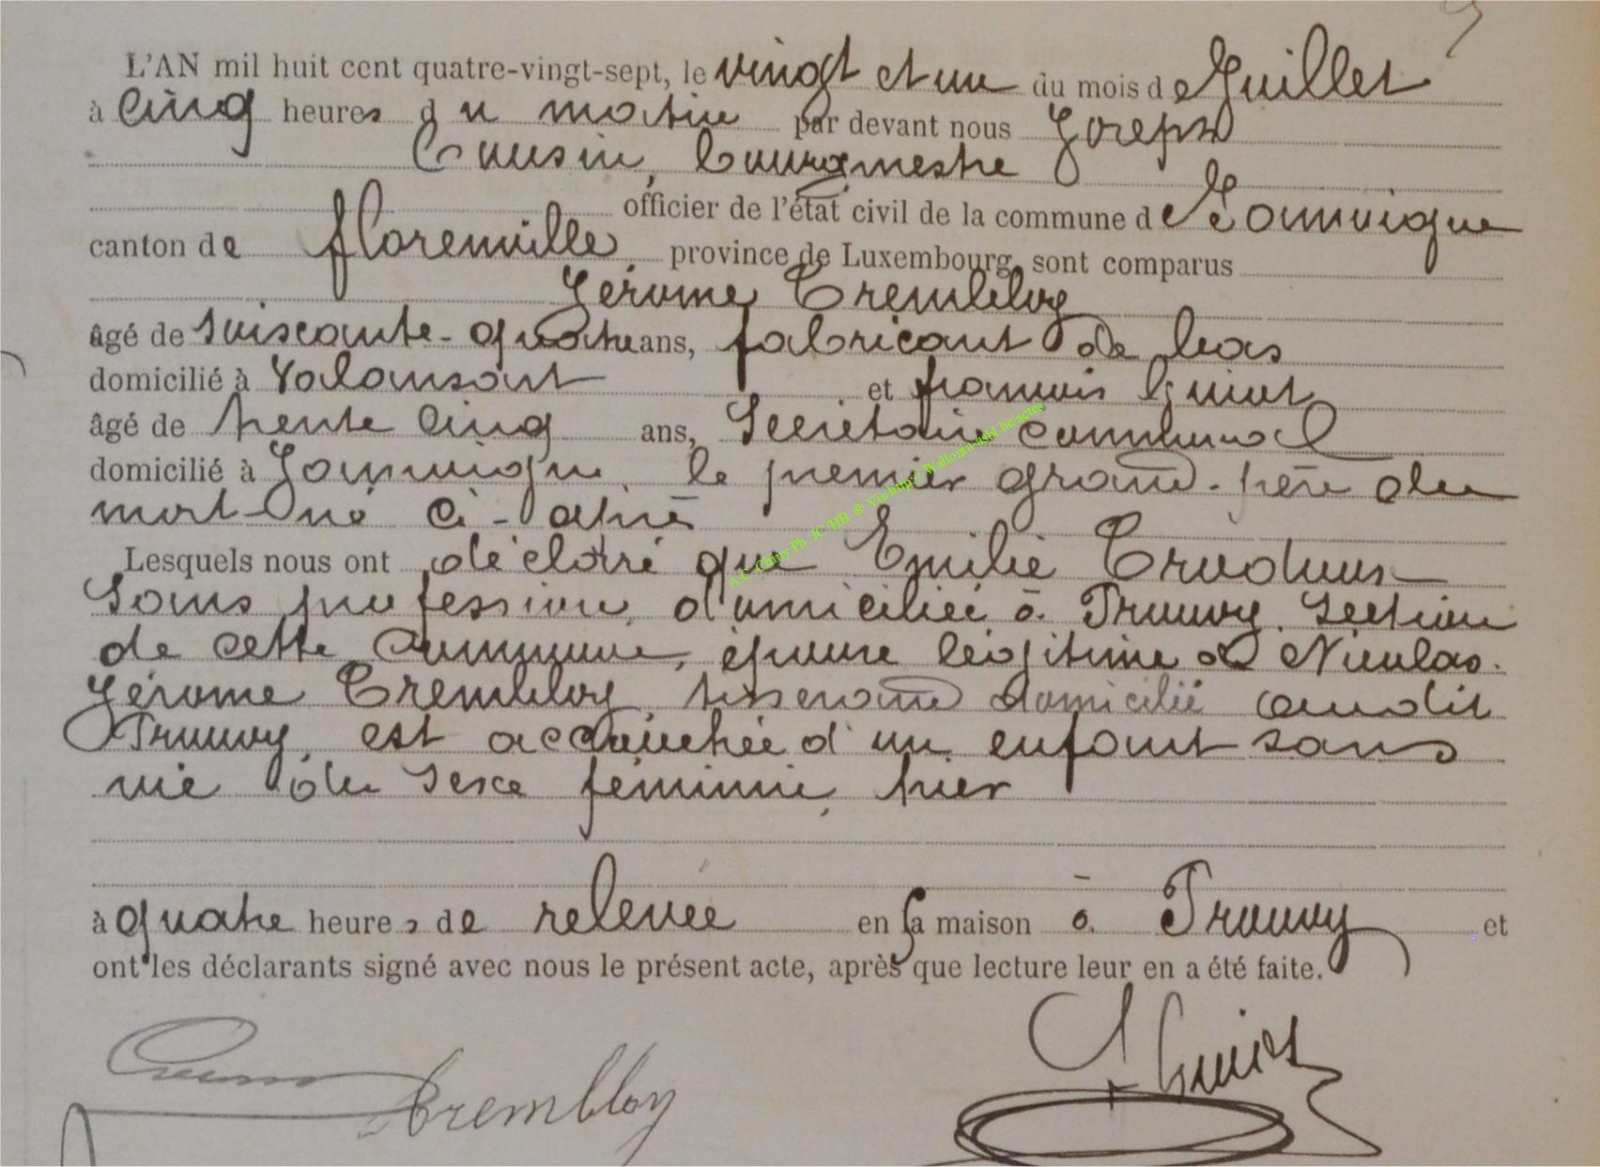 L'AN mil huit cent quatre-vingt-sept, le vingt et un du mois de Juillet
à cinq heures du matin par devant nous Joseph
Cousin, bourgmestre
officier de l'état civil de la commune de Jamoigne
canton de florenville, province de Luxembourg, sont comparus
Jérome Trembloy
âgé de soixante-quatre ans, fabricant de bas
domicilié à Valansart et françois Guiot
âgé de trente cinq ans, Secrétaire communal
domicilié à Jamoigne, le premier grand-père du
mort-né ci-après
Lesquels nous ont déclaré que Emilie
Sans profession, domiciliée à Prouvy, Section
de cette commune, épouse légitime de Nicolas
Jérome Trembloy, tisserand domicilié audit
Prouvy, est accouchée d'un enfant sans
vie du sexe féminin, hier
à quatre heures de relevée en sa maison à Prouvy et
ont les déclarants signé avec nous le présent acte, après que lecture leur en a été faite.
Cousin Trembloy Guiot